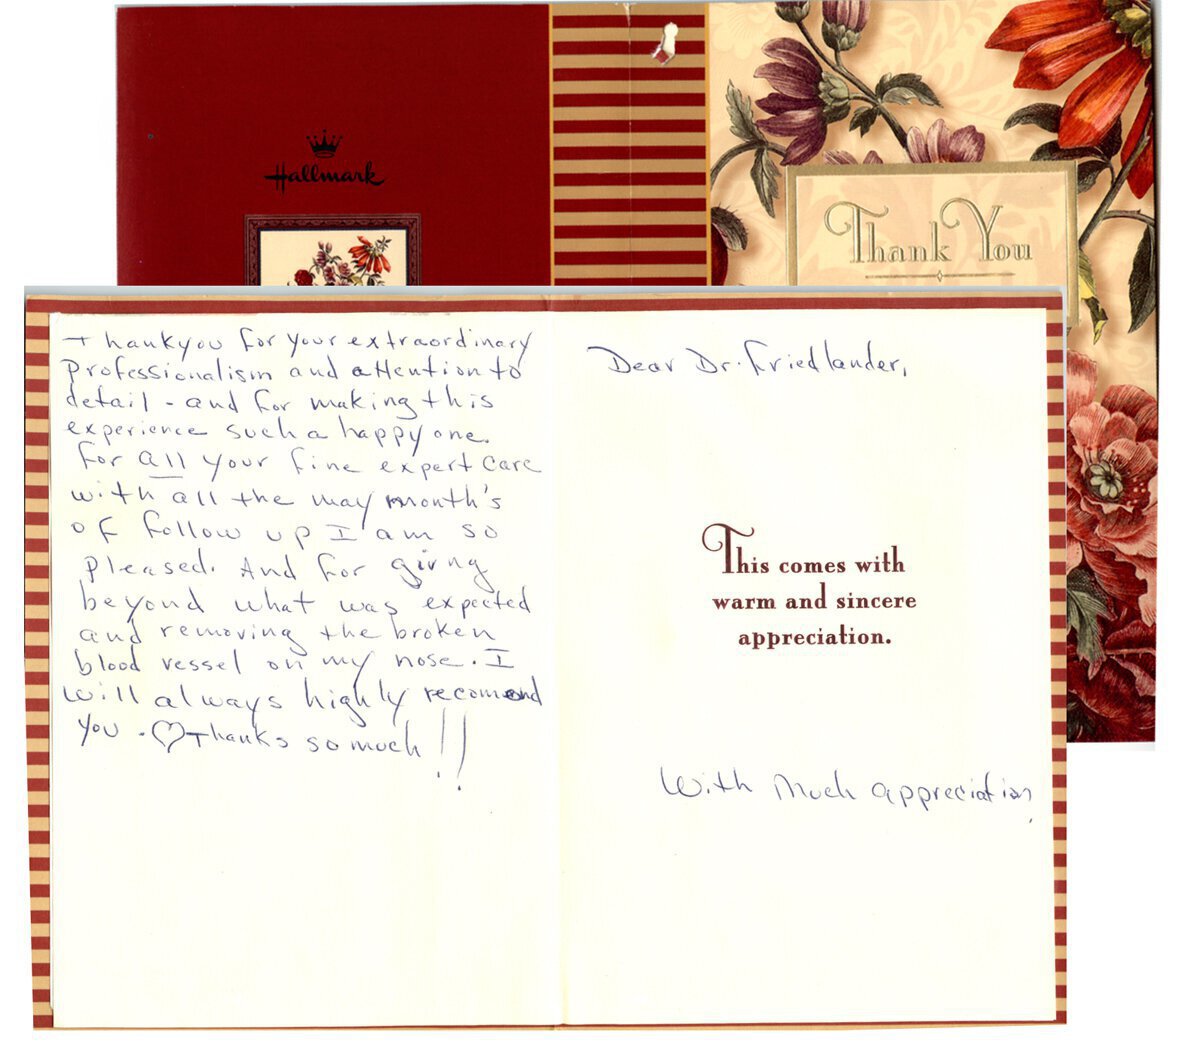 Hallmark
Thank You
Thankyou for your extraordinary
Professionalism and attention to
detail - and for making this
experience such a happy one.
For all your fine expert care
with all the may month's
of follow up I am so
pleased. And for givng
beyond what was expected
and removing the broken
blood vessel on my nose. I
will always highly recomend
you. ♡ Thanks so much!!
Dear Dr. Friedlander,
This comes with
warm and sincere
appreciation.
With Much appreciation,